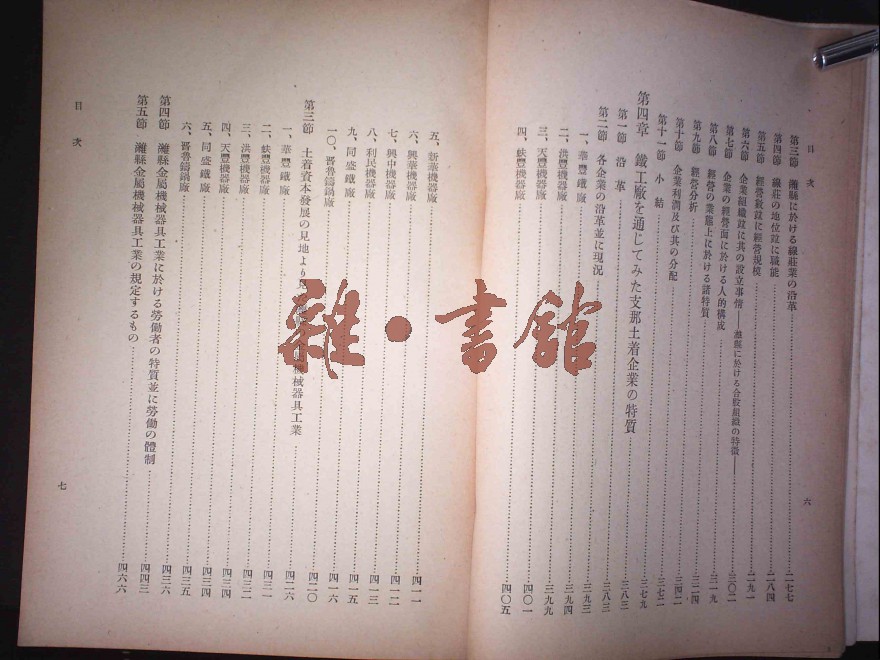 目次
第三節 濰縣に於ける線莊業の沿革 二七七
第四節 線莊の地位並に職能 二八四
第五節 經營數並に經營規模
第六節 企業組織並に其の設立事情 ― 濰縣に於ける合股組織の特徵 ― 三〇二
第七節 企業の經營面に於ける人的構成 三一九
第八節 經營の業態上に於ける諸特質 三二四
第九節 經營分析
第十節 企業利潤及び其の分配 三四二
第十一節 小結 三七二
第四章 鐵工廠を通じてみた支那土着企業の特質 三七九
第一節 沿革 三八三
第二節 各企業の沿革並に現況 三八三
一、華豐鐵廠 三九三
二、洪豐機器廠 三九四
三、天豐機器廠 三九九
四、蚨豐機器廠 四〇一
四〇五
六
五、新華機器廠 四一一
六、興華機器廠 四一二
七、興中機器廠 四一三
八、利民機器廠 四一五
九、同盛鐵廠 四一六
一〇、晋魯鑄鍋廠 四二〇
第三節 土着資本發展の見地より 機械器具工業 四二六
一、華豐鐵廠 四三一
二、蚨豐機器廠 四三二
三、洪豐機器廠 四三四
四、天豐機器廠 四三四
五、同盛鐵廠 四三五
六、晋魯鑄鍋廠 四三六
第四節 濰縣金屬機械器具工業に於ける勞働者の特質並に勞働の體制 四四三
第五節 濰縣金屬機械器具工業の規定するもの 四六六
目次
七
雜·書館